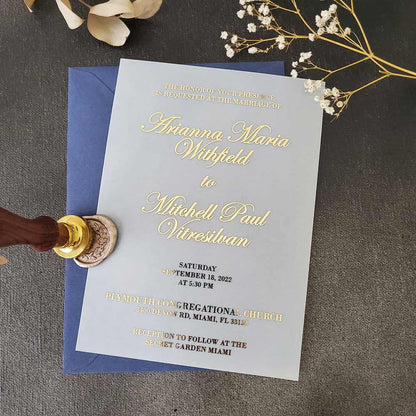 THE HONOR OF YOUR PRESENCE
IS REQUESTED AT THE MARRIAGE OF
Arianna Maria
Withfield
to
Mitchell Paul
Vitresilvan
SATURDAY
SEPTEMBER 18, 2022
AT 5:30 PM
PLYMOUTH CONGREGATIONAL CHURCH
DEVON RD, MIAMI, FL 33133
RECEPTION TO FOLLOW AT THE
SECRET GARDEN MIAMI